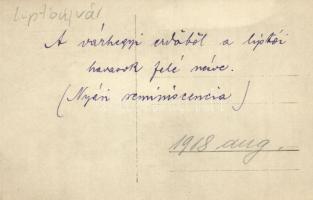 Liptóújvár
A várhegyi erdőből a liptói
havasok felé nézve.
(Nyári reminiscencia)
1918 aug.